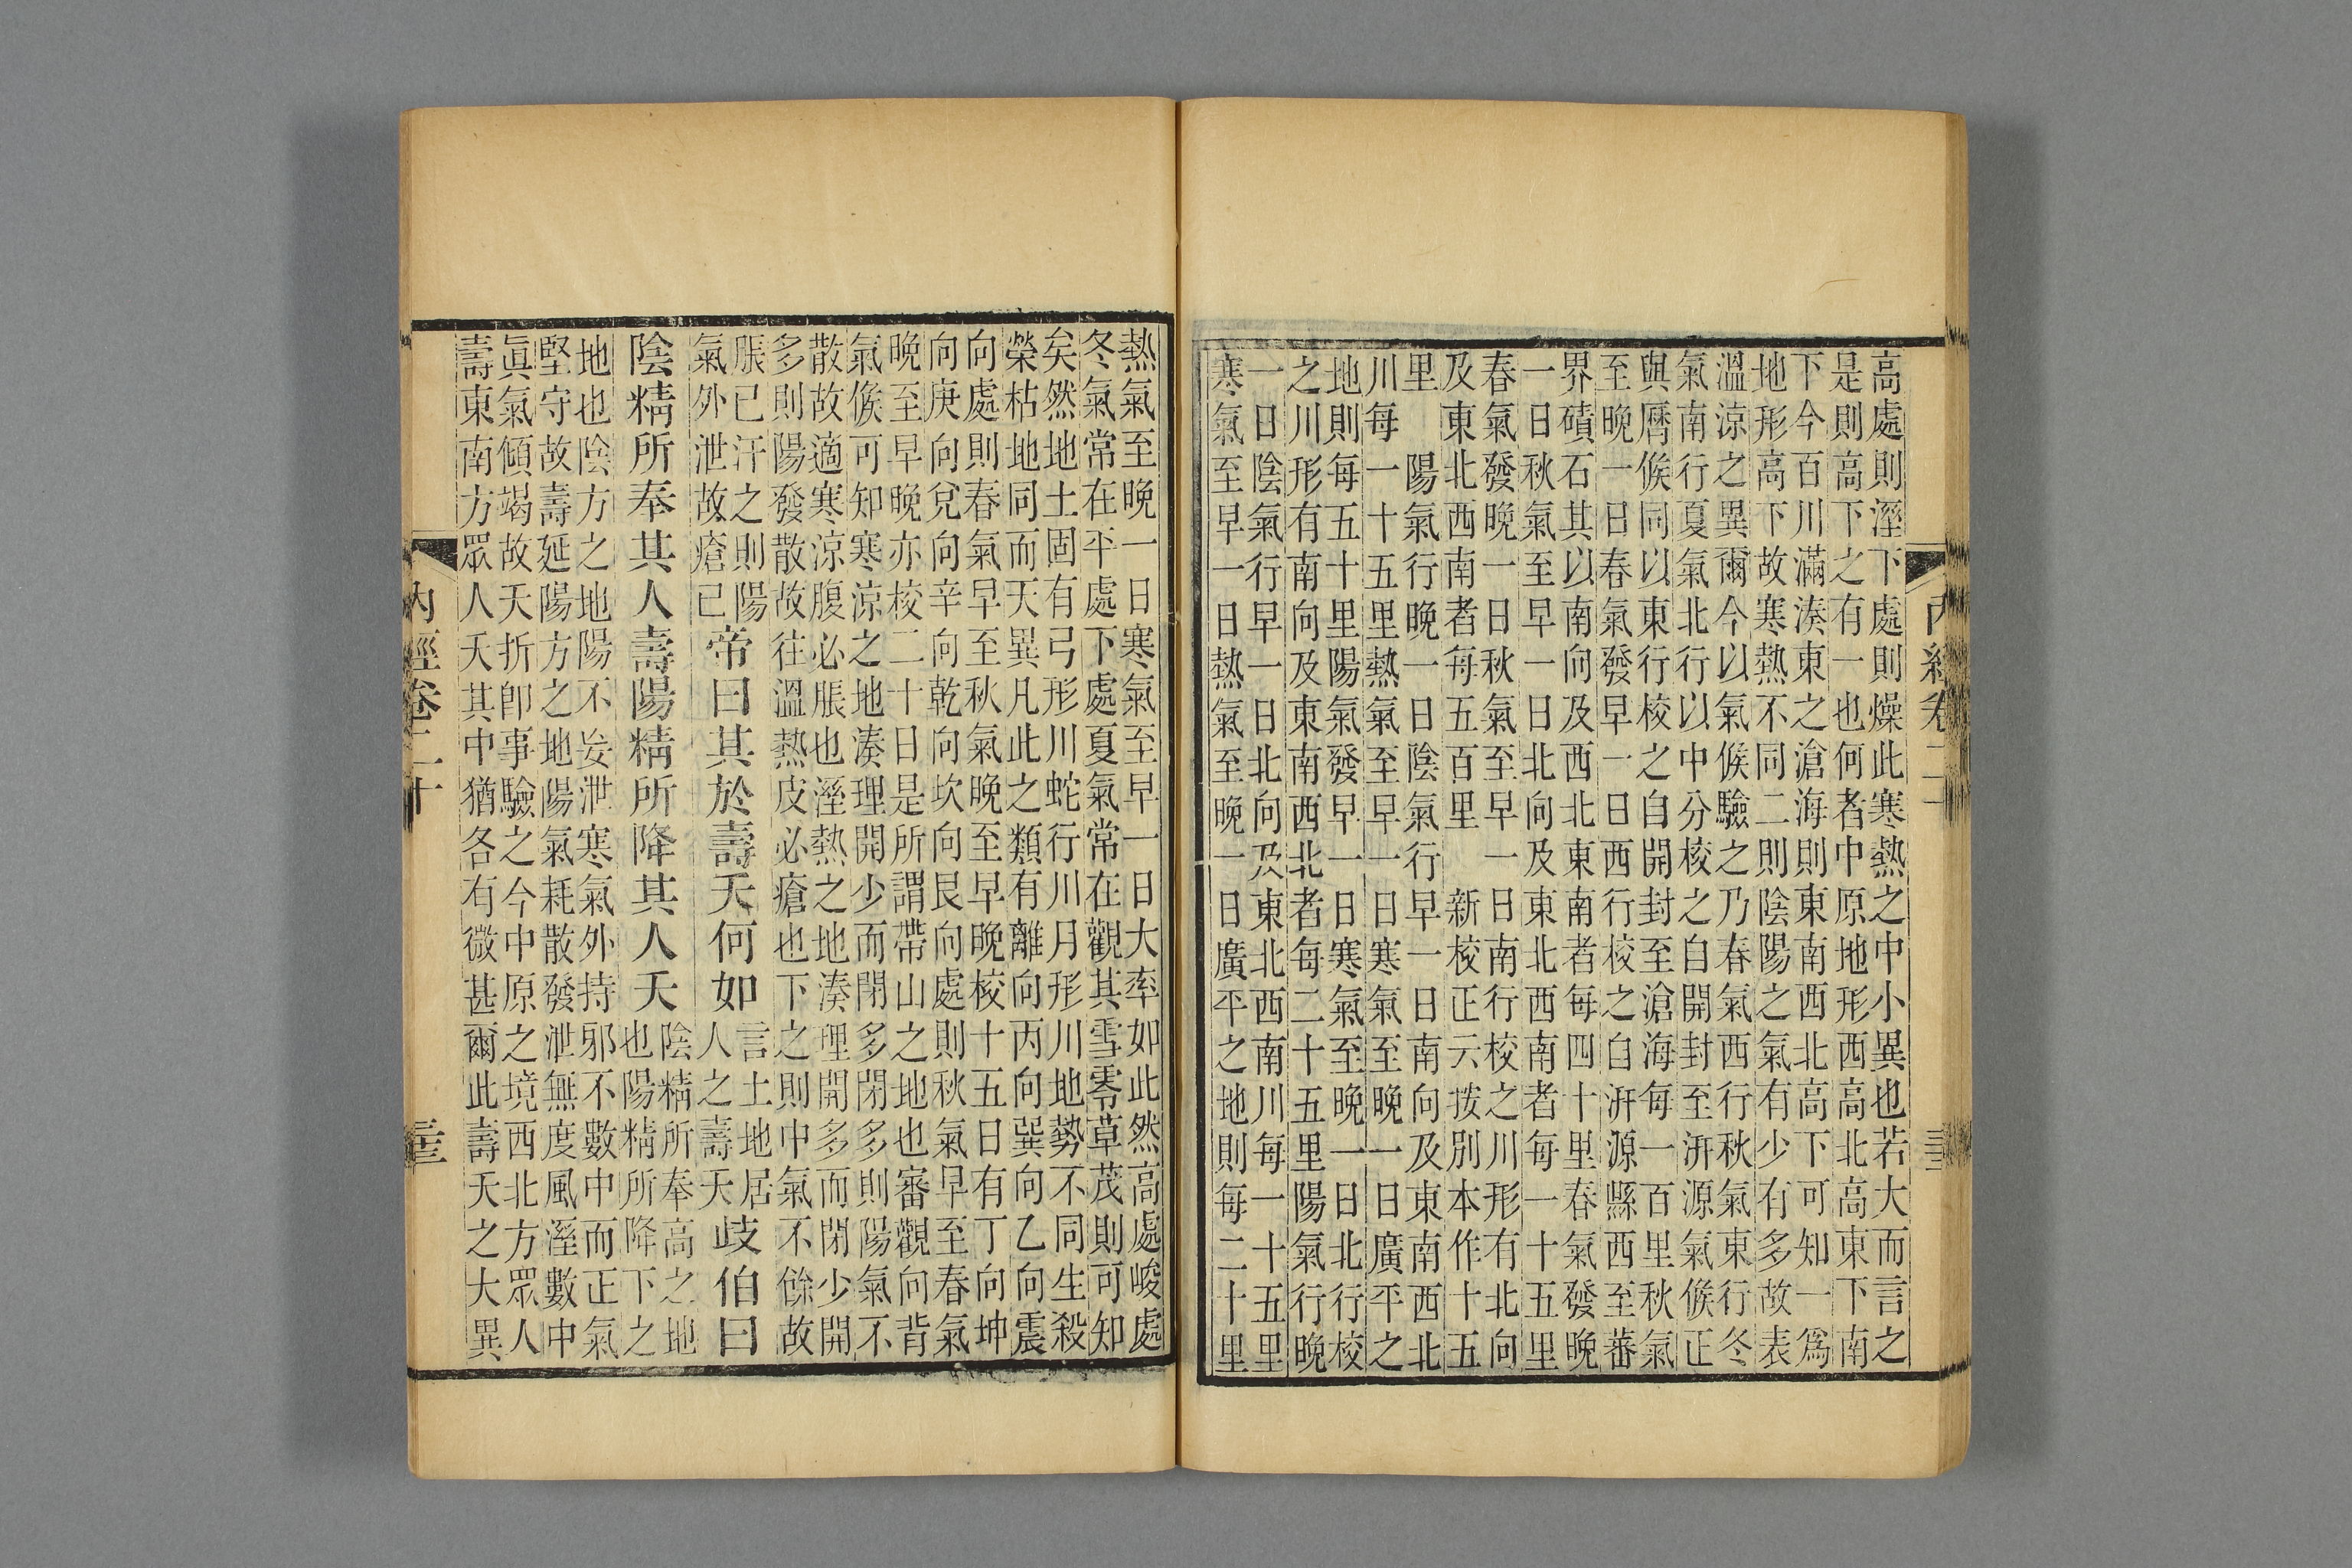 高處則溼下處則燥此寒熱之中小異也若大而言之
是則高下之有一也何者中原地形西高北高東下南
下今百川滿湊東之滄海則東南西北高下可知一爲
地形高下故寒熱不同二則陰陽之氣有少有多故表
溫涼之異爾今以氣候驗之乃春氣西行秋氣東行冬
氣南行夏氣北行以中分校之自開封至汧源氣候正
與曆候同以東行校之自開封至滄海每一百里秋氣
至晚一日春氣發早一日西行校之自汧源縣西至蕃
界磧石其以南向及西北東南者每四十里春氣發晚
一日秋氣至早一日北向及東北西南者每一十五里
春氣發晚一日秋氣至早一日南行校之川形有北向
及東北西南者每五百里 新校正云按別本作十五
里 陽氣行晚一日陰氣行早一日南向及東南西北
川每一十五里熱氣至早一日寒氣至晚一日廣平之
地則每五十里陽氣發早一日寒氣至晚一日北行校
之川形有南向及東南西北者每二十五里陽氣行晚
一日陰氣行早一日北向及東北西南川每一十五里
寒氣至早一日熱氣至晚一日廣平之地則每二十里
熱氣至晚一日寒氣至早一日大率如此然高處峻處
冬氣常在平處下處夏氣常在觀其雪零草茂則可知
矣然地土固有弓形川蛇行川月形川地勢不同生殺
榮枯地同而天異凡此之類有離向丙向巽向乙向震
向處則春氣早至秋氣晚至早晚校十五日有丁向坤
向庚向兌向辛向乾向坎向艮向處則秋氣早至春氣
晚至早晚亦校二十日是所謂帶山之地也審觀向背
氣候可知寒涼之地湊理開少而閉多閉多則陽氣不
散故適寒涼腹必脹也溼熱之地湊理開多而閉少開
多則陽發散故往溫熱皮必瘡也下之則中氣不餘故
脹已汗之則陽
氣外泄故瘡已
帝曰其於壽夭何如
言土地居
人之壽夭
歧伯曰
陰精所奉其人壽陽精所降其人夭
陰精所奉高之地
也陽精所降下之
地也陰方之地陽不妄泄寒氣外持邪不數中而正氣
堅守故壽延陽方之地陽氣耗散發泄無度風溼數中
眞氣傾竭故夭折卽事驗之今中原之境西北方眾人
壽東南方眾人夭其中猶各有微甚爾此壽夭之大異
內經卷二十